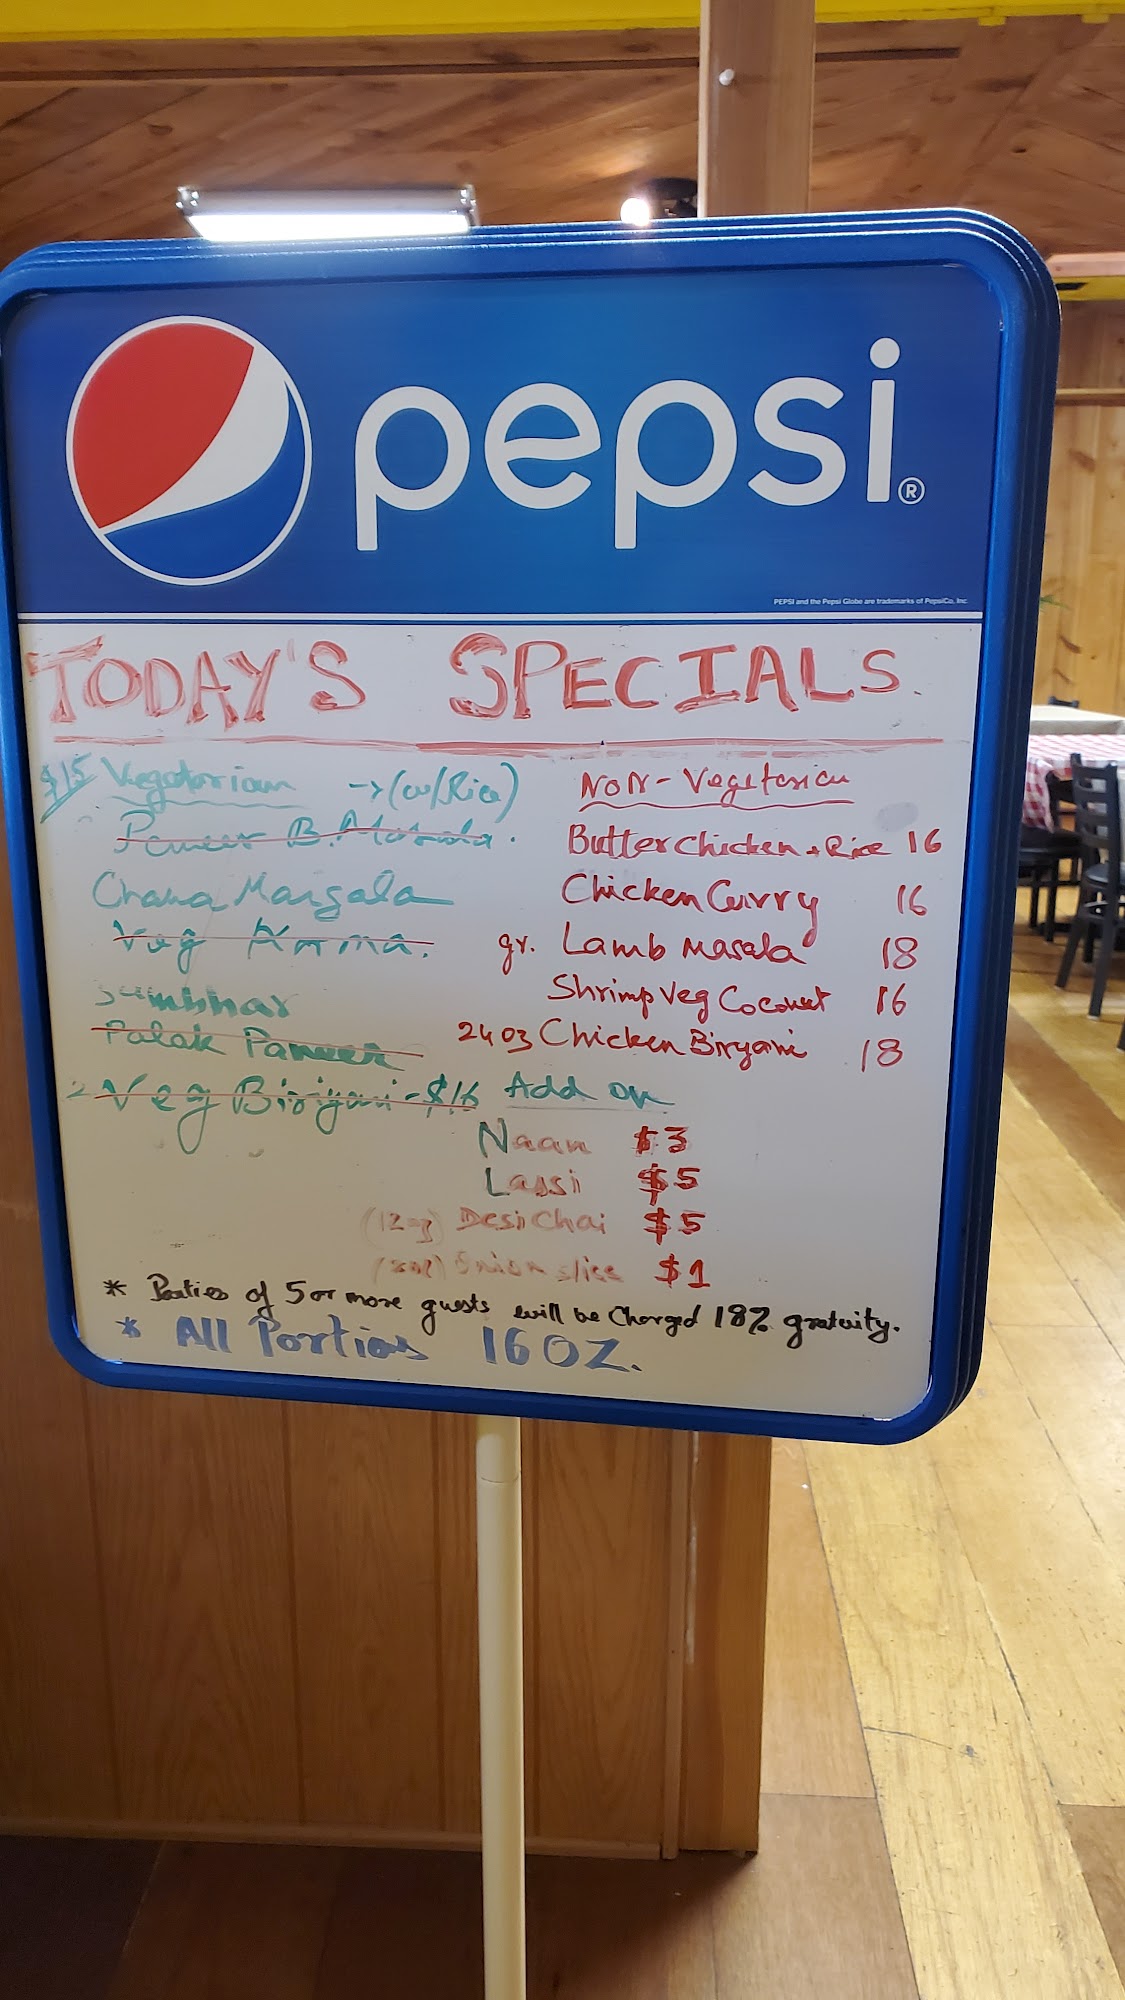 pepsi®
PEPSI and the Pepsi Globe are trademarks of PepsiCo, Inc.
TODAY'S SPECIALS
$15 Vegetarian -> (w/Rice)
Paneer B. Masala.
Chana Mansala
Veg Korma.
Sumbhar
Palak Paneer
Veg Biriyani - $16
Non-Vegetarian
Butter Chicken + Rice 16
Chicken Curry 16
gr. Lamb Masala 18
Shrimp Veg Coconut 16
24oz Chicken Biryani 18
Add on
Naan $3
Lassi $5
(12oz) Desi Chai $5
Onion slice $1
* Parties of 5 or more guests will be Charged 18% gratuity.
* All Portions 16 OZ.